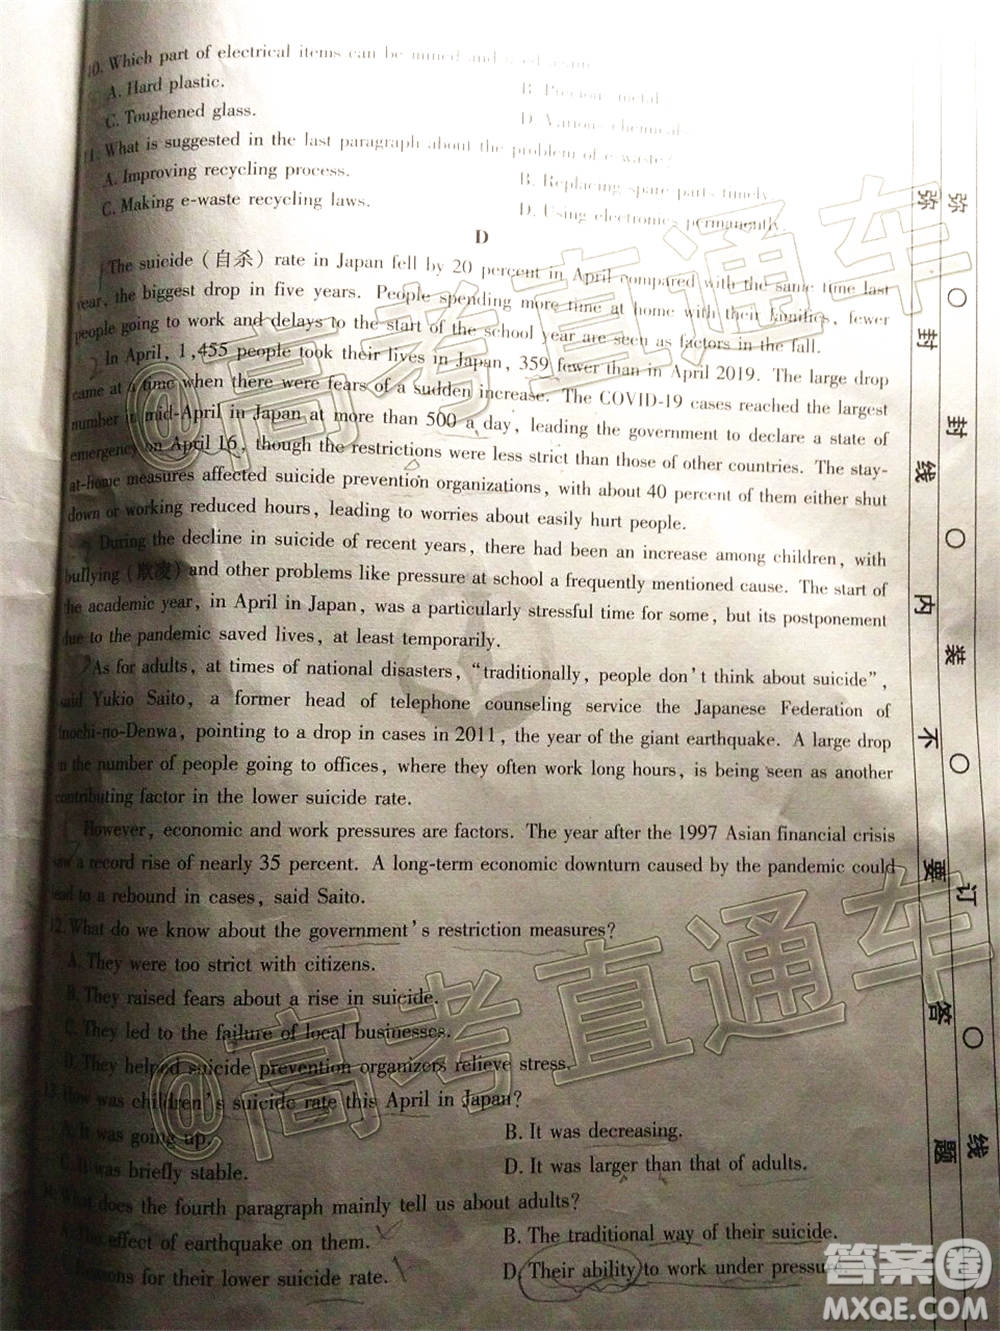 10. Which part of electrical items can be mined and used again
A. Hard plastic.
B. Precious metal
C. Toughened glass.
D. Various chemicals
11. What is suggested in the last paragraph about the problem of e-waste?
A. Improving recycling process.
B. Replacing spare parts timely.
C. Making e-waste recycling laws.
D. Using electronics permanently.
D
The suicide (自杀) rate in Japan fell by 20 percent in April compared with the same time last
year, the biggest drop in five years. People spending more time at home with their families, fewer
people going to work and delays to the start of the school year are seen as factors in the fall.
In April, 1,455 people took their lives in Japan, 359 fewer than in April 2019. The large drop
came at a time when there were fears of a sudden increase. The COVID-19 cases reached the largest
number in mid-April in Japan at more than 500 a day, leading the government to declare a state of
emergency on April 16, though the restrictions were less strict than those of other countries. The stay-
at-home measures affected suicide prevention organizations, with about 40 percent of them either shut
down or working reduced hours, leading to worries about easily hurt people.
During the decline in suicide of recent years, there had been an increase among children, with
bullying (欺凌) and other problems like pressure at school a frequently mentioned cause. The start of
the academic year, in April in Japan, was a particularly stressful time for some, but its postponement
due to the pandemic saved lives, at least temporarily.
As for adults, at times of national disasters, "traditionally, people don't think about suicide",
said Yukio Saito, a former head of telephone counseling service the Japanese Federation of
Inochi-no-Denwa, pointing to a drop in cases in 2011, the year of the giant earthquake. A large drop
in the number of people going to offices, where they often work long hours, is being seen as another
contributing factor in the lower suicide rate.
However, economic and work pressures are factors. The year after the 1997 Asian financial crisis
saw a record rise of nearly 35 percent. A long-term economic downturn caused by the pandemic could
lead to a rebound in cases, said Saito.
12. What do we know about the government's restriction measures?
A. They were too strict with citizens.
B. They raised fears about a rise in suicide.
C. They led to the failure of local businesses.
D. They helped suicide prevention organizers relieve stress.
13. How was children's suicide rate this April in Japan?
A. It was going up.
B. It was decreasing.
C. It was briefly stable.
D. It was larger than that of adults.
14. What does the fourth paragraph mainly tell us about adults?
A. The effect of earthquake on them.
B. The traditional way of their suicide.
C. Reasons for their lower suicide rate.
D. Their ability to work under pressure.
弥 封 线 内 不 要 答 题
弥 封 装 订 线
@高考直通车
@高考直通车
答案圈
MXQE.COM